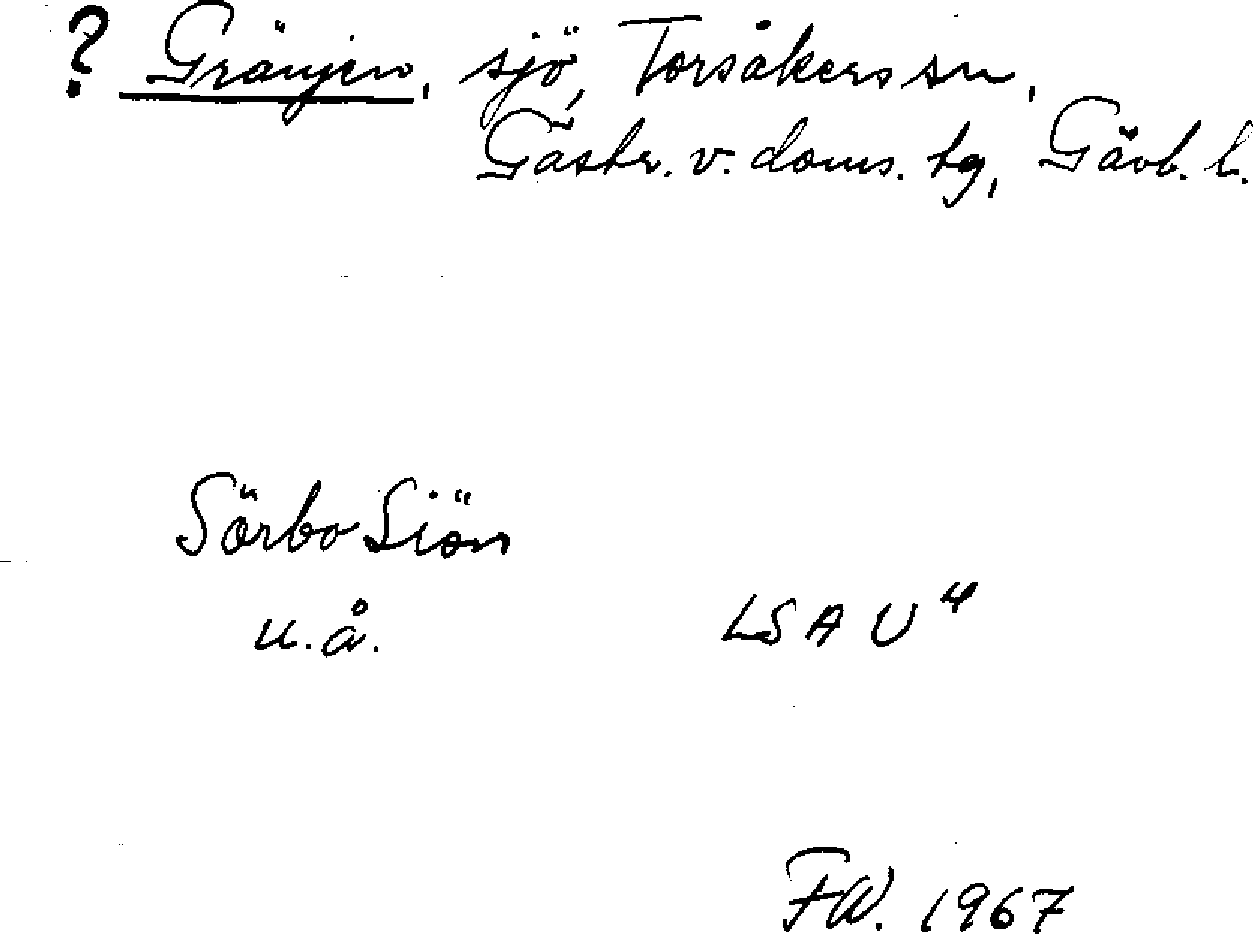 ? Gränjen, sjö, Torsåkers sn,
Gästr. v. doms. tg, Gävl. l.
Sörbo Siön
u.å. LSA U⁴
FW. 1967